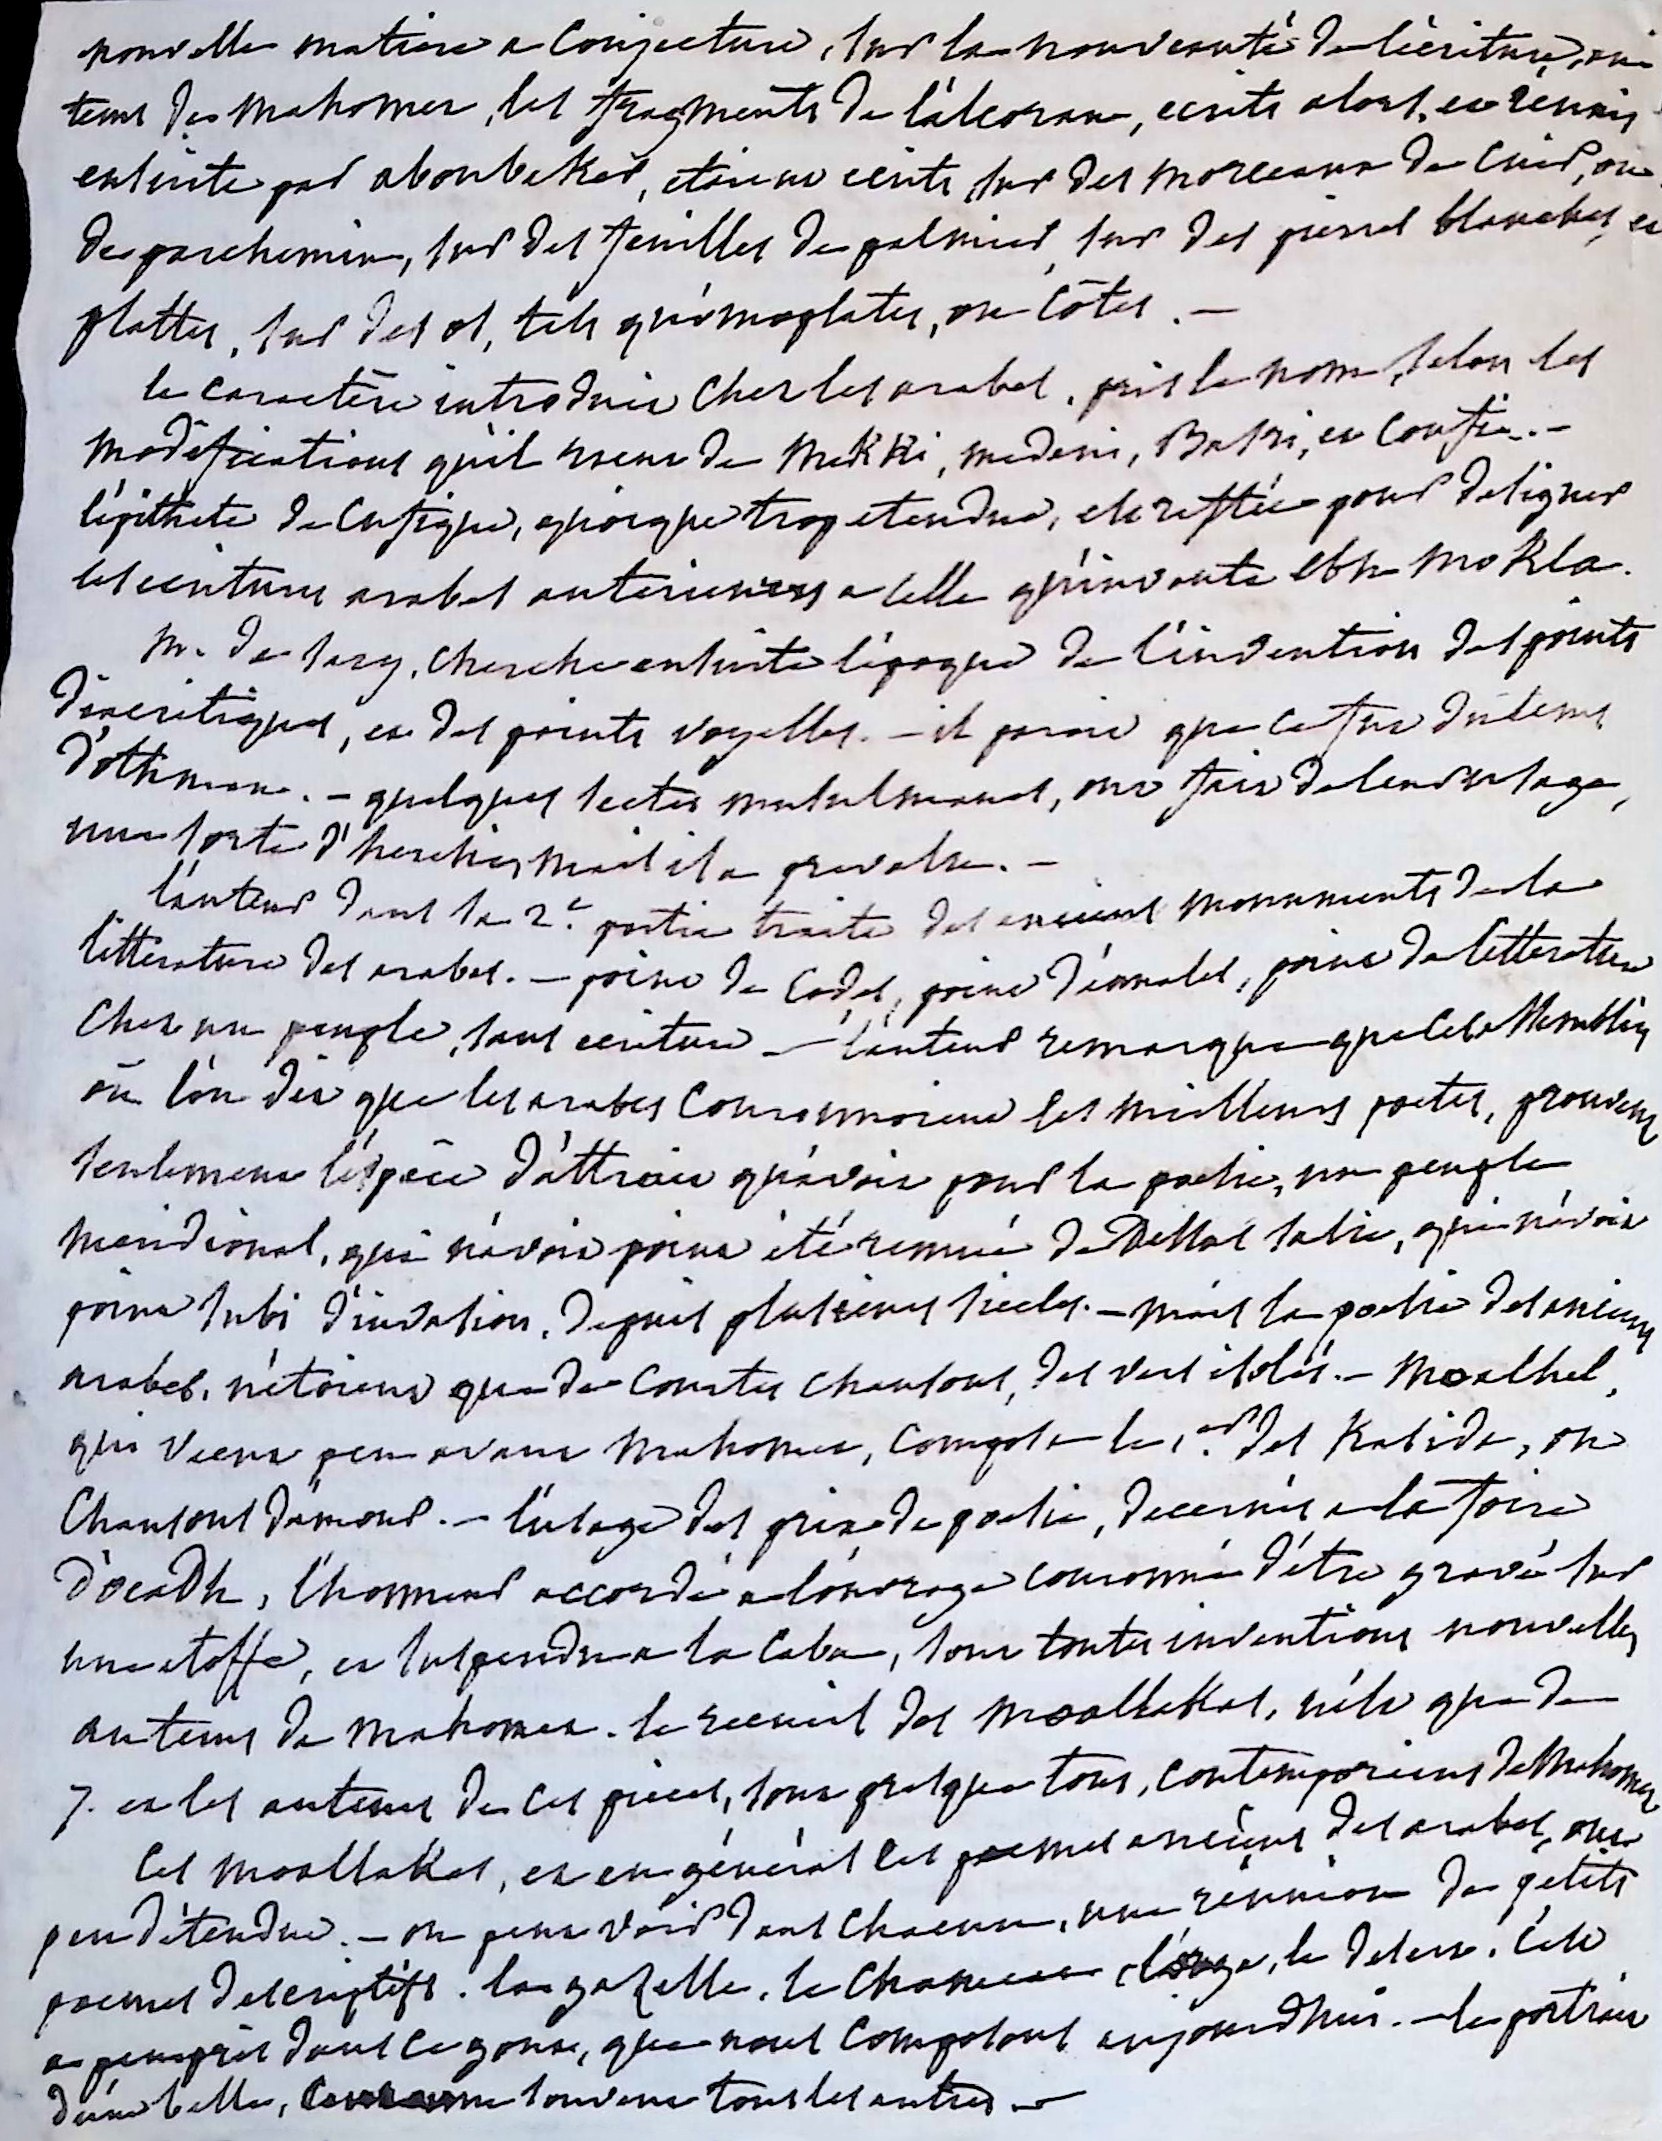 nouvelle matiere a conjecture, sur la nouveauté de l'écriture, au
tems de Mahomet, les fragments de l'alcoran, ecrits alors, et réunis
ensuite par aboubeker, etoient ecrits sur des morceaux de cuir, ou
de parchemin, sur des feuilles de palmier, sur des pierres blanches, et
plattes, sur des os, tels qu'omoplates, ou côtes. —
le caractère introduit chez les arabes, prit le nom, selon les
modifications qu'il reçut de Mekki, medeni, Basri, et Coufi. —
l'épithete de cufique, quoique trop etendue, est restée pour designer
les ecritures arabes anterieures a celle qu'inventa Ebn Mokla.
M. de Sacy, cherche ensuite l'époque de l'invention des points
diacritiques, et des points voyelles. — il paroit que ce fut du tems
d'othman. — quelques sectes musulmanes, ont fait de leur usage,
une sorte d'heresie, mais il a prevalu. —
l'auteur dans sa 2.e partie traite des anciens monuments de la
littérature des arabes. — point de codes, point d'annales, point de litterature
chez un peuple, sans ecriture — l'auteur remarque que ces assemblées
où l'on dit que les arabes couronnoient les meilleurs poetes, prouvent
seulement l'éspèce d'attrait qu'avoit pour la poesie, un peuple
meridional, qui n'avoit point été remué de dessus sa base, qui n'avoit
point subi d'invasion, depuis plusieurs siecles. — mais la poesie des anciens
arabes, n'étoient que de courtes chansons, des vers isolés. — Moalhel,
qui vécut peu avant Mahomet, composa le 1.er des Kasida, ou
chansons d'amour. — l'usage des prix de poesie, decernés a la foire
d'ocadh, l'honneur accordé a l'ouvrage couronné d'être gravé sur
une etoffe, et suspendu a la Caba, sont toutes inventions nouvelles
au tems de Mahomet. le recueil des Moallakas, n'est que de
7. et les auteurs de ces pieces, sont presque tous, contemporains de Mahomet
Ces Moallakas, et en général les poemes anciens des arabes, ont
peu d'étendue. — on peut voir dans chacun, une réunion de petits
poemes descriptifs. la gazelle, le chameau, l'orage, le desert. C'est
a peu près dans ce genre, que nous composons aujourdhui. — le portrait
d'une belle, souvent tous les autres. —